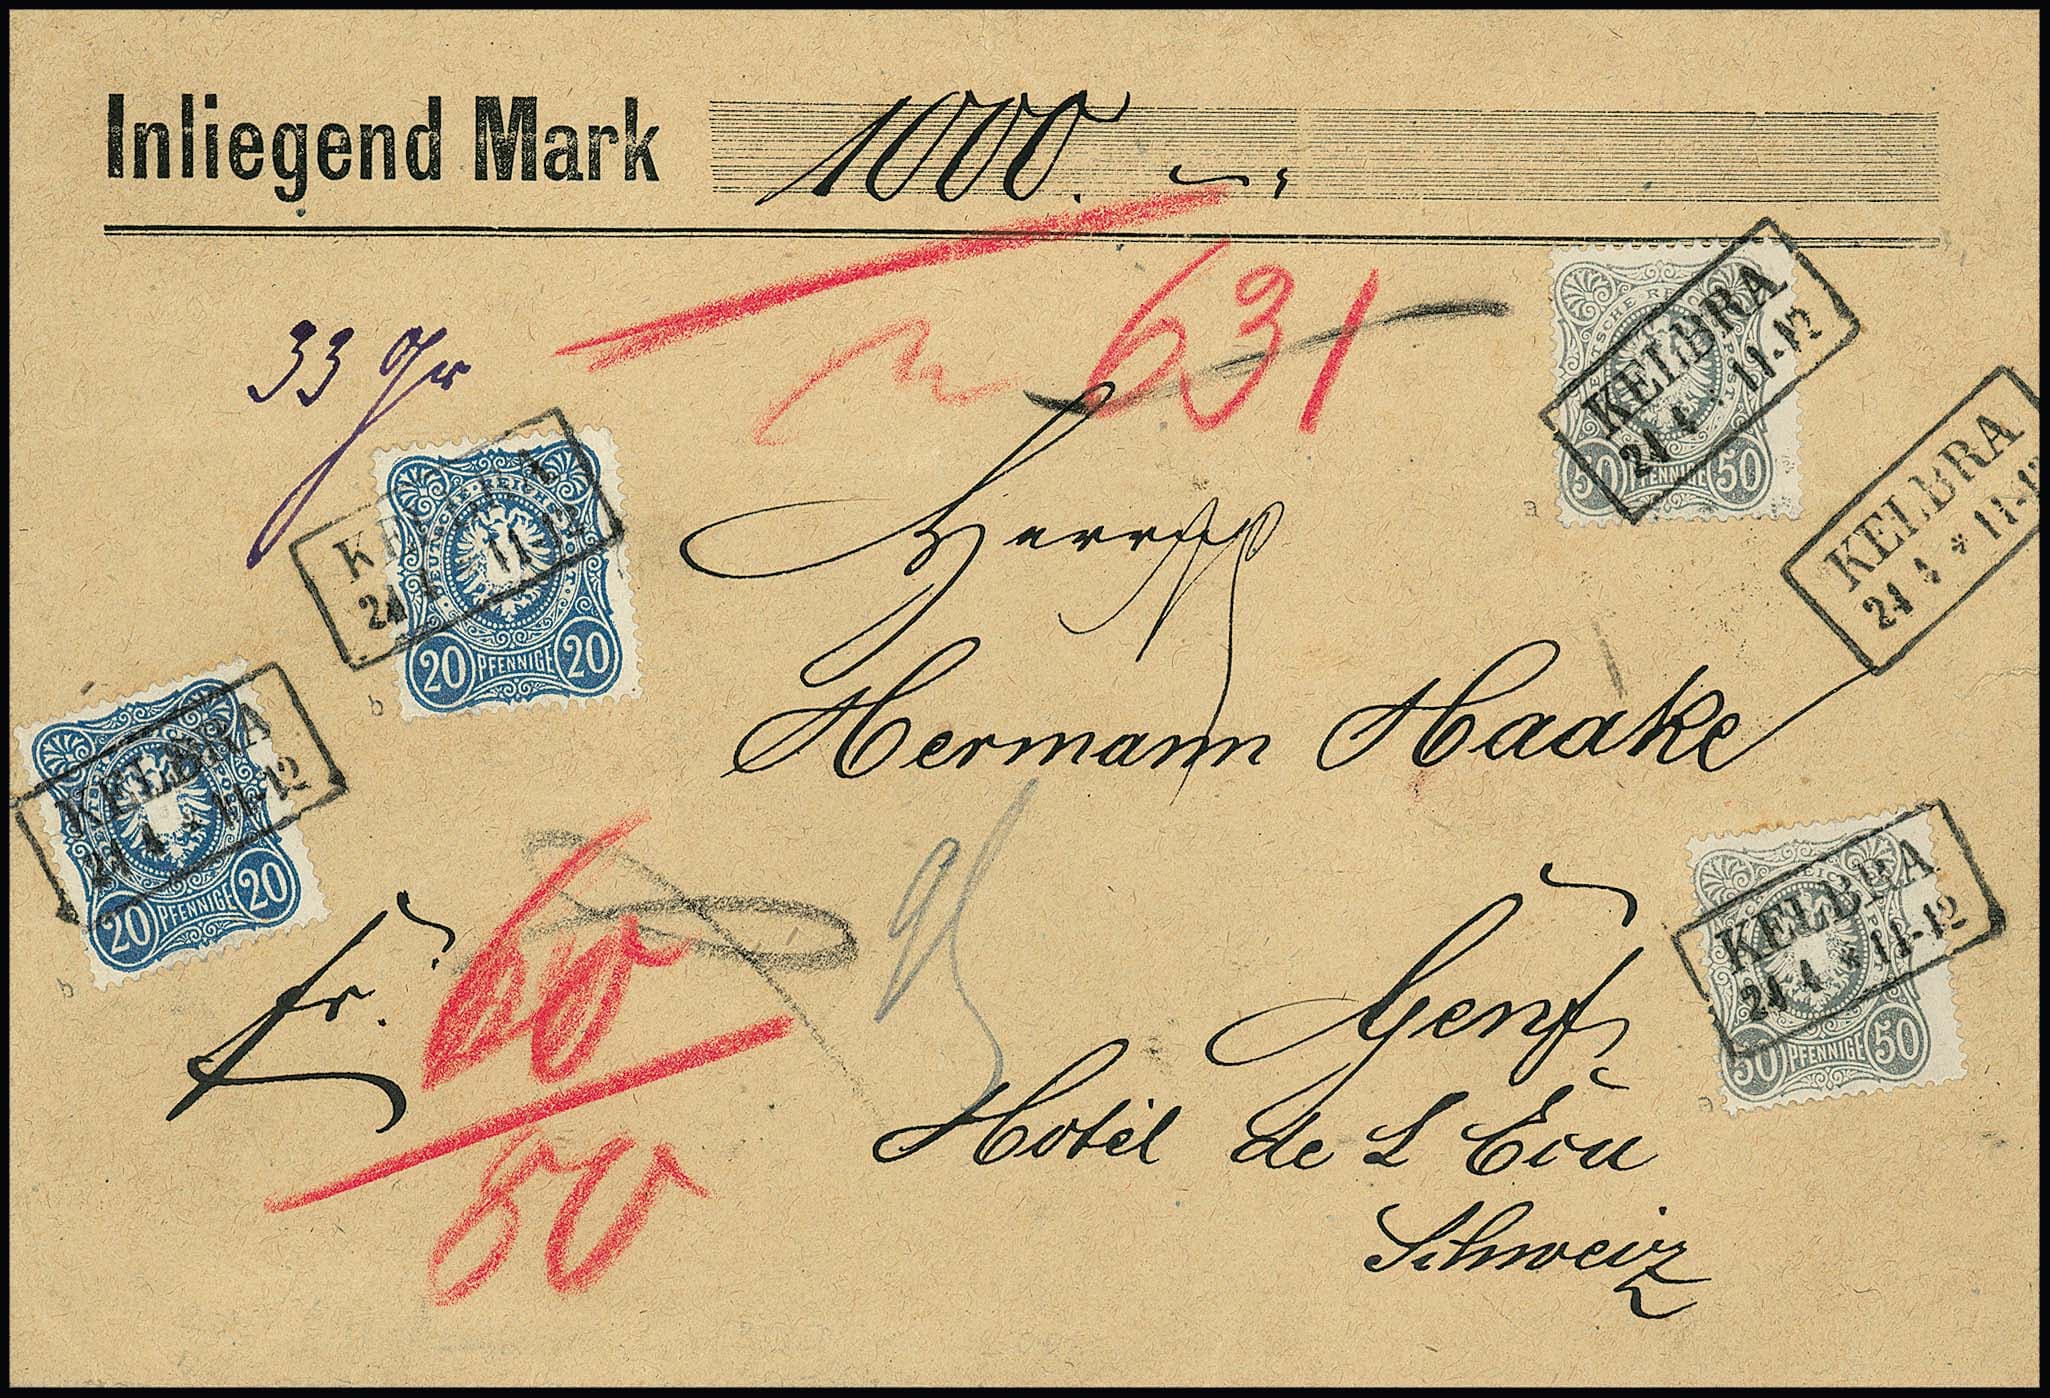 Inliegend Mark 1000.
631
33 gr
DEUTSCHE REICHS-POST
50 PFENNIGE 50
KELBRA
24 4 * 11-12
KELBRA
24 4 * 11-12
DEUTSCHE REICHS-POST
20 PFENNIGE 20
KELBRA
24 4 * 11-12
Herrn
Hermann Haake
20 PFENNIGE 20
KELBRA
24 4 * 11-12
50 PFENNIGE 50
KELBRA
24 4 * 11-12
fr. 60
80
Genf
Hotel de L Ecu
Schweiz